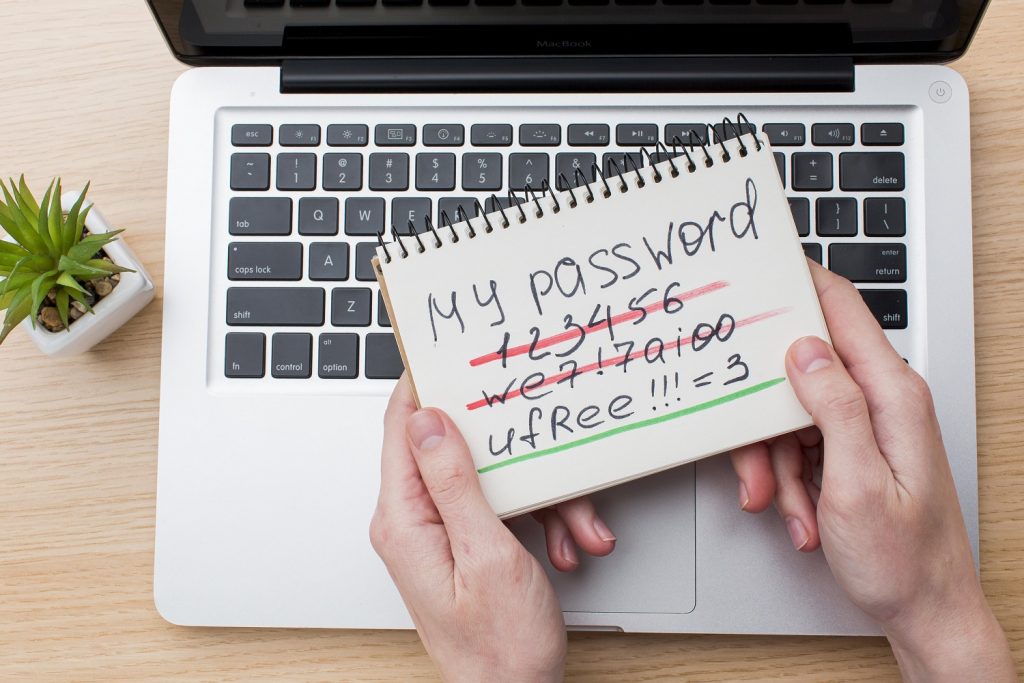 MacBook
esc F1 F2 F3 F4 F5 F6 F7 F8 F11 F12
~ ! 1 @ 2 # 3 $ 4 % 5 ^ 6 & + = delete
tab Q W E R } ] { [ | \
caps lock A enter return
shift Z shift
fn control alt option
My password
123456
we7!7aioo
ufRee!!!=3